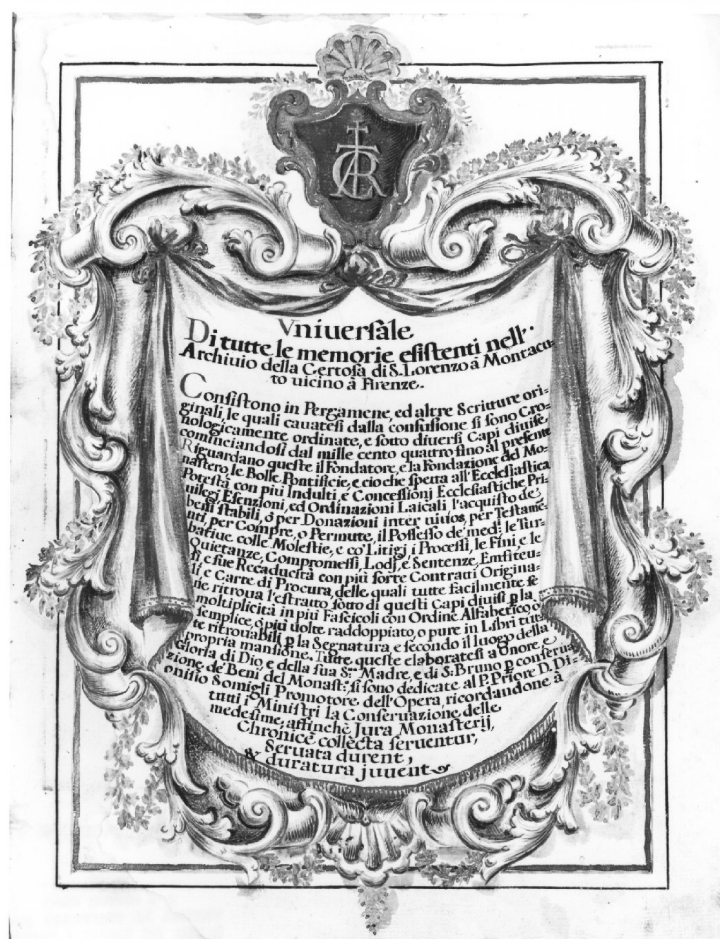 CAR
Vniuersale
Di tutte le memorie esistenti nell'.
Archiuio della Certosa di S. Lorenzo à Montacu=
to uicino à Firenze.
Consistono in Pergamene, ed altre Scritture ori=
ginali, le quali cauatesi dalla confusione si sono Cro=
nologicamente ordinate, e sotto diuersi Capi diuise,
cominciandosi dal mille cento quattro fino al presente
Riguardano queste il Fondatore, e la Fondazione del Mo=
nastero, le Bolle Pontificie, e cio che spetta all'Ecclesiastica
Potestà con più Indulti, e Concessionj Ecclesiastiche, Pri=
uilegj Esenzioni, ed Ordinazioni Laicali l'acquisto de'
beni stabili, ò per Donazioni inter uiuos, per Testame=
nti, per Compre, o Permute, il Possesso de' med.ⁱ le Tur=
batiue colle Molestie, e co' Litigj i Processi, le Fini e le
Quietanze, Compromessi, Lodj, e Sentenze, Emfiteu=
si e sue Recaducità con più sorte Contratti Origina=
li e Carte di Procura, delle quali tutte facilmente se
ne ritroua l'estratto sotto di questi Capi diuisi p la
moltiplicità in più Fascicoli con Ordine Alfabetico, ò
semplice, ò più uolte raddoppiato, o pure in Libri tut=
te ritrouabili p la Segnatura, e secondo il luogo della
propria mansione. Tutte queste elaboratesi a Onore, e
Gloria di Dio, e della sua S.ᵐᵃ Madre, e di S. Bruno p conserua
zione de' Beni del Monast.º si sono dedicate al P. Priore D. Di=
onisio Somigli Promotore dell'Opera, ricordandone à
tutti i Ministri la Conseruazione delle
medesime, affinchè Jura Monasterij,
Chronicè collecta seruentur,
Seruata durent,
& duratura juuent